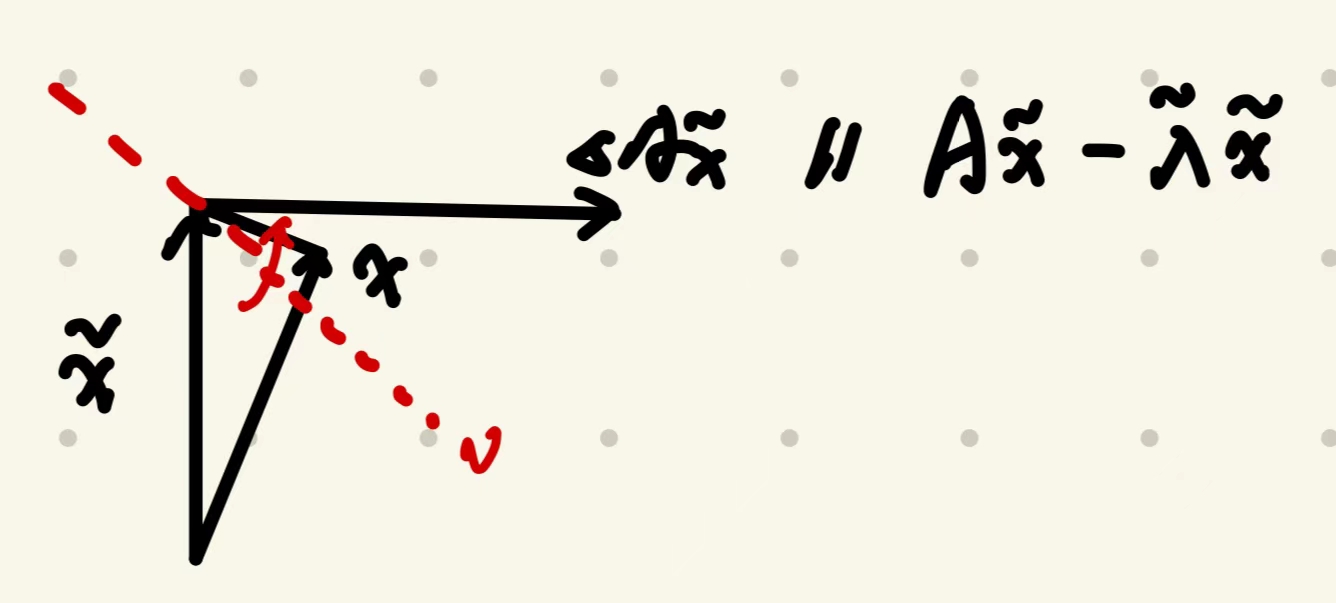 ∆Ax̃ ∥ Ax̃ - λ̃x̃
x
x̃
v